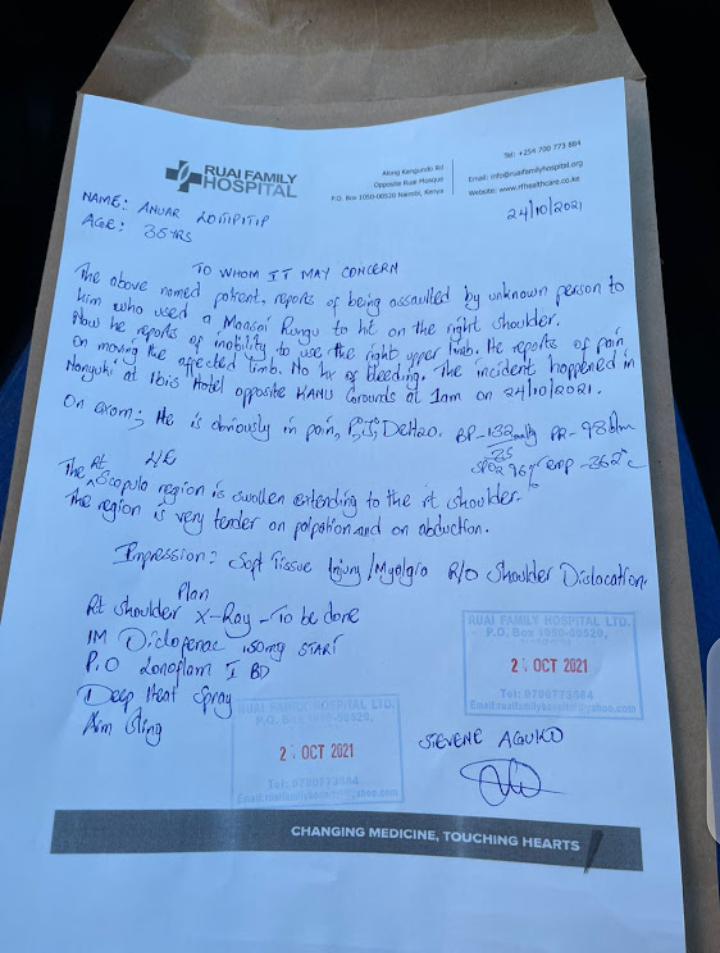 RUAI FAMILY
HOSPITAL
Along Kangundo Rd
Opposite Ruai Mosque
P.O. Box 1050-00520 Nairobi, Kenya
Tel: +254 700 773 884
Email: info@ruaifamilyhospital.org
Website: www.rfhealthcare.co.ke
24/10/2021
NAME: ANUAR LOITIPITIP
AGE: 35YRS
TO WHOM IT MAY CONCERN
The above named patient, reports of being assaulted by unknown person to
him who used a Maasai Rungu to hit on the right shoulder.
Now he reports of inability to use the right upper limb. He reports of pain
on moving the affected limb. No hx of bleeding. The incident happened in
Nanyuki at Ibis Hotel opposite KANU Grounds at 1am on 24/10/2021.
On exam; He is obviously in pain, BP-132 mmHg PR-98blm
85
SPO2 96% Temp -36.2°c
L/E
The Rt Scapula region is swollen extending to the rt shoulder.
The region is very tender on palpation and on abduction.
Impression: Soft Tissue Injury/Myalgia R/O Shoulder Dislocation.
Plan
Rt Shoulder X-Ray - To be done
IM Diclofenac 150mg START
P.O Lonaflam I BD
Deep Heat Spray
Arm Sling
RUAI FAMILY HOSPITAL LTD.
P.O. Box 1050-00520,
OCT 2021
Tel: 0700773884
Email:ruaifamilyhospital@yahoo.com
RUAI FAMILY HOSPITAL LTD.
P.O. Box 1050-00520,
OCT 2021
Tel: 0700773884
Email:ruaifamilyhospital@yahoo.com
STEVENE AGUKO
CHANGING MEDICINE, TOUCHING HEARTS